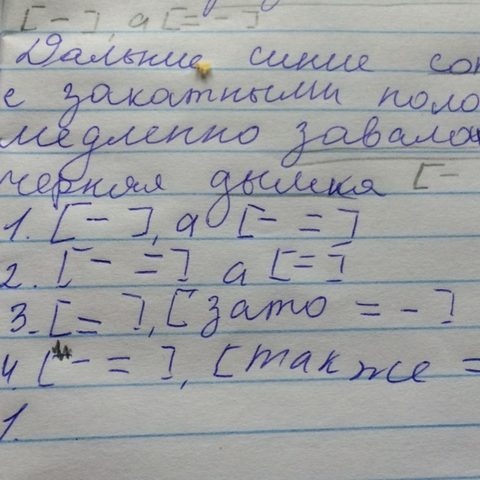 [-], а [=-]
Дальние синие соп
с закатными поло
медленно завалак
черная дымка [-
1. [- ], а [- =]
2. [- =] а [=]
3. [=], [зато = -]
4. [- = ], [также =
1.